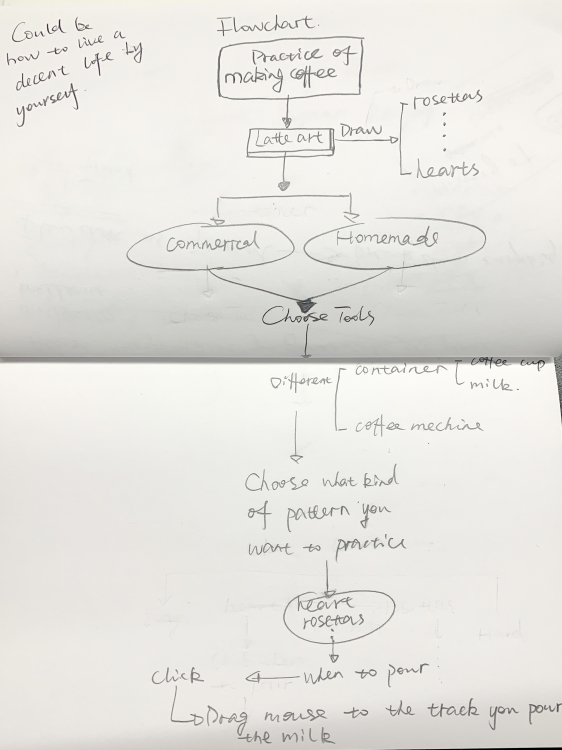 Could be
how to live a
decent life by
yourself.
Flowchart.
Practice of
making coffee
Latte art
Draw
rosettas
hearts
Commerical
Homemade
Choose Tools
Different
container
coffee cup
milk.
coffee mechine
Choose what kind
of pattern you
want to practice
heart
rosettas
when to pour
Click
Drag mouse to the track you pour
the milk